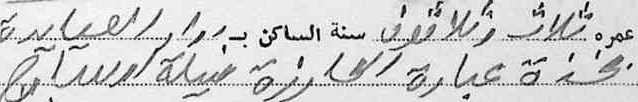 عمره ثلاث وثلاثون سنة الساكن بـ دوار العبابدة
فخذة عبارة الحارزة قبيلة اولاد